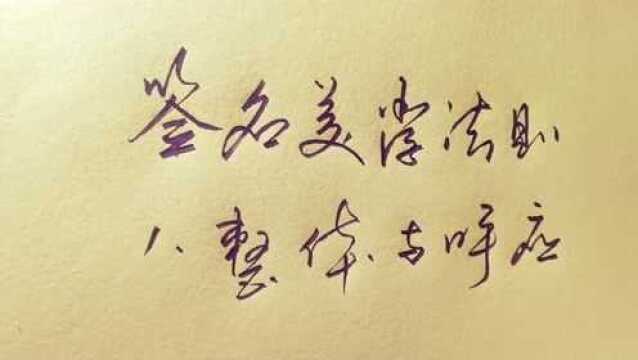 签名美学法则
1、整体与呼应